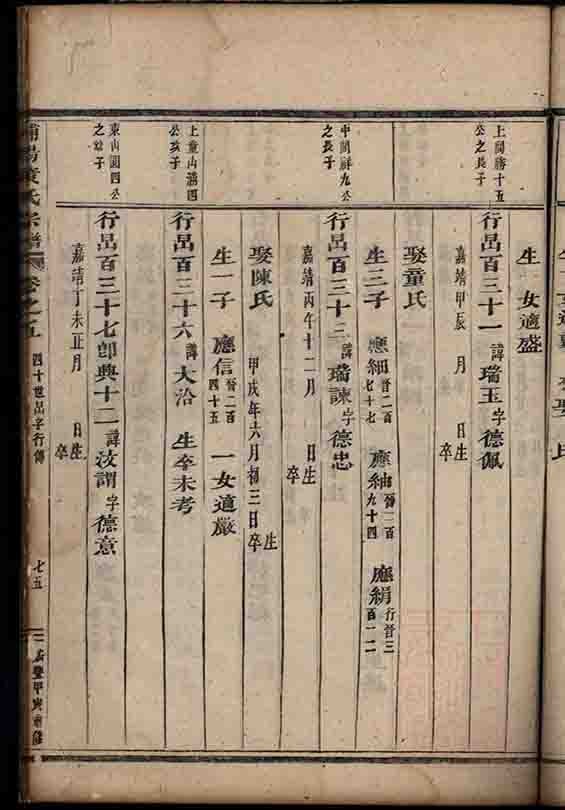 生一女適盛
上閣勝十五
公之長子
行昌百三十一諱瑞玉字德佩
嘉靖甲辰 月 日生
卒
娶童氏
生三子 應細晉二百七十七 應紬晉二百九十四 應絹行晉三百一一
中閣祥九公
之長子
行昌百三十三諱瑞諫字德忠
嘉靖丙午十二月 日生
卒
娶陳氏 甲戌年六月初三日生
卒
生一子 應信晉二百四十五 一女適嚴
上童山滿四
公
子
行昌百三十六諱大治 生卒未考
東山圓四公
之 子
行昌百三十七卽興十二諱汝謂字德意
嘉靖丁未正月 日生
卒
浦陽 氏宗譜 卷之五 四十世昌字行傳 七五 咸豐甲寅重修